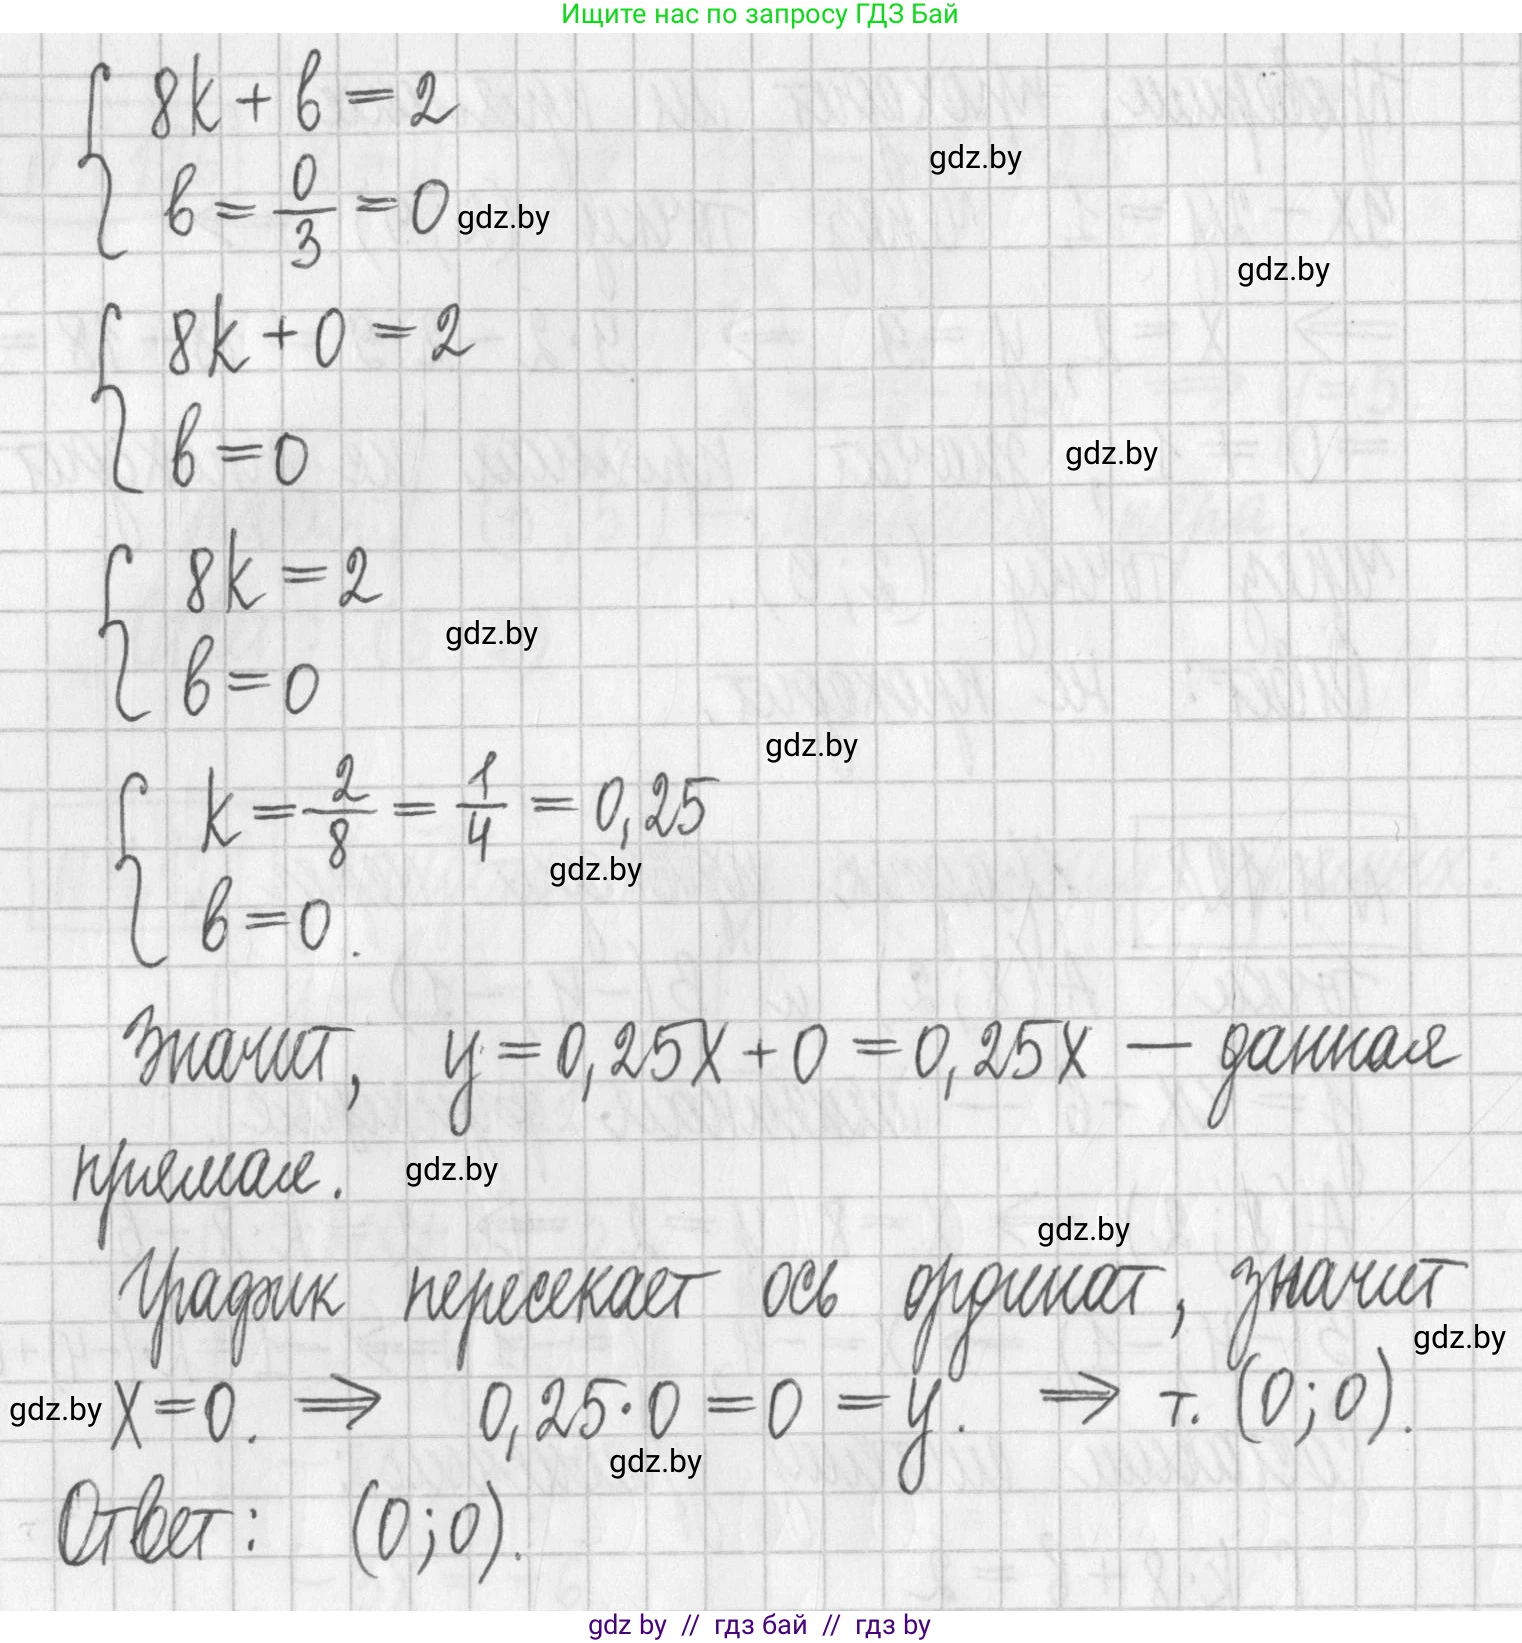 Ищите нас по запросу ГДЗ Бай
8k + b = 2
gdz.by
b = 0/3 = 0 gdz.by
gdz.by
8k + 0 = 2
b = 0
gdz.by
8k = 2
gdz.by
b = 0
gdz.by
k = 2/8 = 1/4 = 0,25
gdz.by
b = 0.
Значит, y = 0,25x + 0 = 0,25x — данная
прямая. gdz.by
gdz.by
График пересекает ось ординат, значит
gdz.by
gdz.by x = 0. ⇒ 0,25·0 = 0 = y. ⇒ т. (0;0).
gdz.by
Ответ: (0;0).
gdz by // гдз бай // гдз by